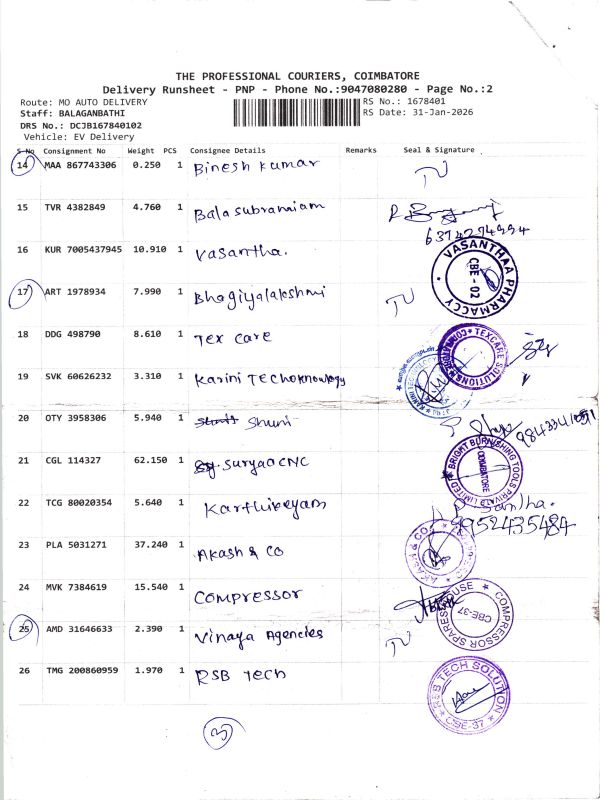 THE PROFESSIONAL COURIERS, COIMBATORE
Delivery Runsheet - PNP - Phone No.:9047080280 - Page No.:2
Route: MO AUTO DELIVERY
RS No.: 1678401
Staff: BALAGANBATHI
RS Date: 31-Jan-2026
DRS No.: DCJB167840102
Vehicle: EV Delivery
S No Consignment No Weight PCS Consignee Details Remarks Seal & Signature
14 MAA 867743306 0.250 1 Binesh kumar TV
15 TVR 4382849 4.760 1 Balasubramiam
6374274994
16 KUR 7005437945 10.910 1 Vasantha.
VASANTHAA PHARMACCY
CBE - 02
17 ART 1978934 7.990 1 Bhagiyalakshmi TV
18 DDG 498790 8.610 1 Tex care
TEXCARE SOLUTIONS
19 SVK 60626232 3.310 1 Karini TECHoknowlogy
20 OTY 3958306 5.940 1 Shuni
21 CGL 114327 62.150 1 SuryaOCNC
BRIGHT BURNISHING TOOLS PRIVATE LIMITED
COIMBATORE
22 TCG 80020354 5.640 1 Karthikeyam
P. Santha.
9952435484
23 PLA 5031271 37.240 1 Akash & CO
AKASH & CO.
24 MVK 7384619 15.540 1 COMPRESSOR
COMPRESSOR SPARES HOUSE
CBE-37
25 AMD 31646633 2.390 1 Vinaya Agencies TV
26 TMG 200860959 1.970 1 RSB Tech
RSB TECH SOLUTION
CBE-37
3